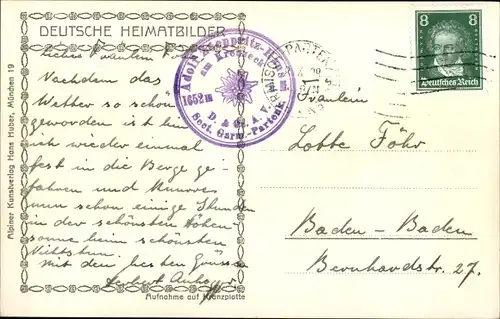 DEUTSCHE HEIMATBILDER
Liebes Fräulein F
Nachdem das
Wetter so schön
geworden ist bin
ich wieder einmal
fest in die Berge ge-
fahren und
nun schon einige Stunden
in der schönsten Höhen-
sonne beim schönsten
Nichtstun.
Mit den besten Grüssen
Herbert
Aufnahme auf Kranzplatte
Alpiner Kunstverlag Hans Huber, München 19
Adolf Zoeppritz-Haus
am Kreuzeck
1652 m
D. & Ö. A. V.
Sect. Garm.-Partenk.
PARTENK
8 8
Deutsches Reich
Fräulein
Lotte Föhr
Baden-Baden
Bernhardstr. 27.